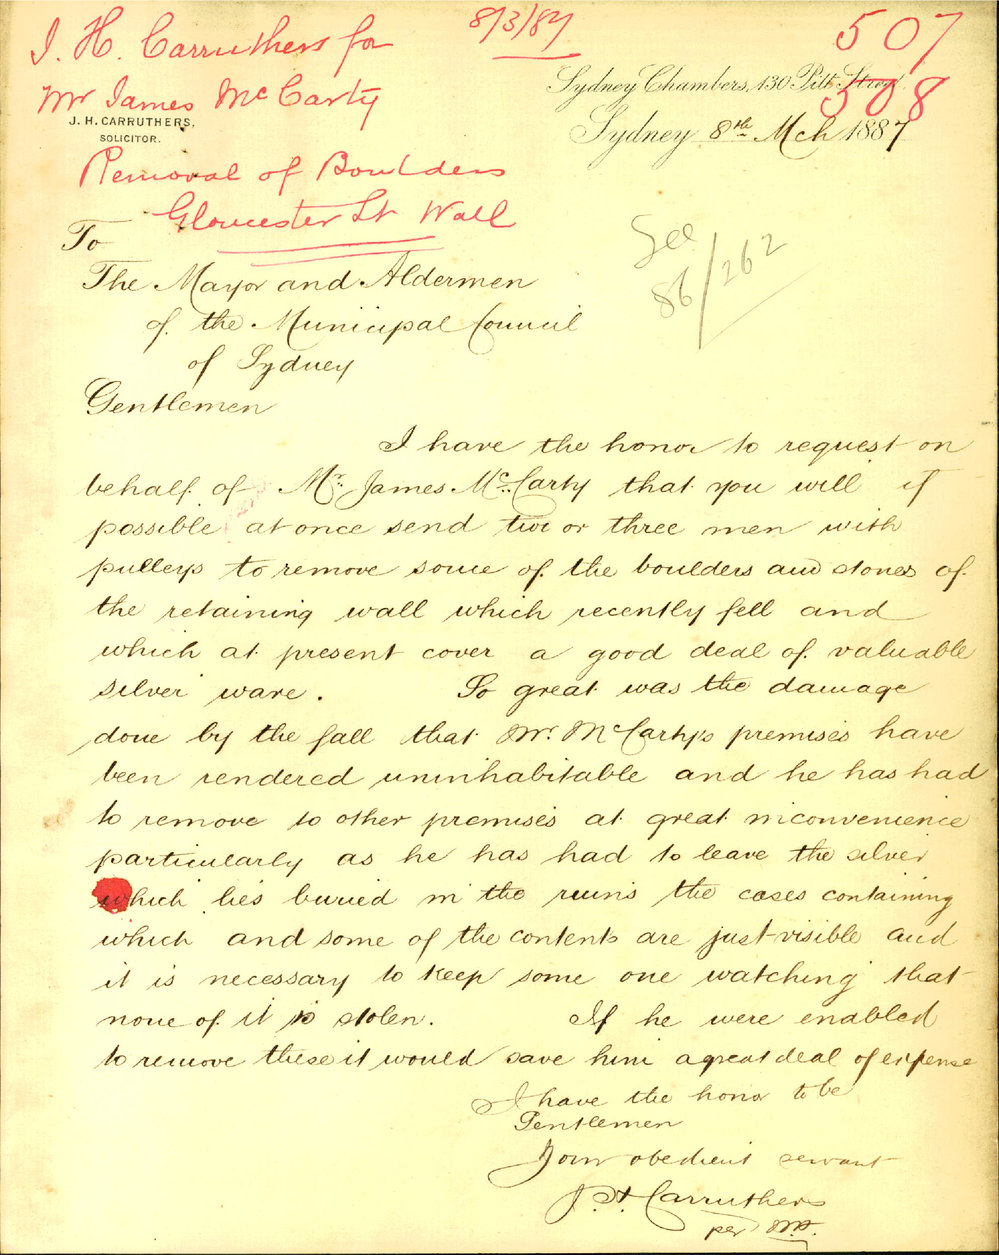 J. H. Carruthers for
8/3/87
507
508
Mr James McCarty
J. H. CARRUTHERS,
SOLICITOR.
Removal of Boulders
Gloucester St Wall
Sydney Chambers, 130 Pitt Street.
Sydney 8th Mch 1887
See
86/262
To
The Mayor and Aldermen
of the Municipal Council
of Sydney
Gentlemen
I have the honor to request on
behalf of Mr. James McCarty that you will if
possible at once send two or three men with
pulleys to remove some of the boulders and stones of
the retaining wall which recently fell and
which at present cover a good deal of valuable
silver ware. So great was the damage
done by the fall that Mr. McCarty's premises have
been rendered uninhabitable and he has had
to remove to other premises at great inconvenience
particularly as he has had to leave the silver
which lies buried in the ruins the cases containing
which and some of the contents are just visible and
it is necessary to keep some one watching that
none of it is stolen. If he were enabled
to remove these it would save him a great deal of expense
I have the honor to be
Gentlemen
Your obedient servant
J. H. Carruthers
per